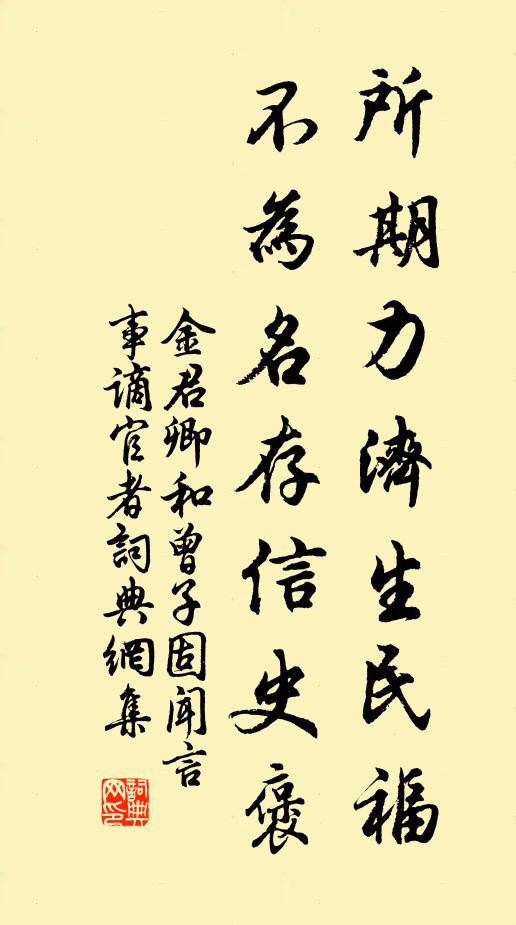 所期力濟生民福
不為名存信史褒
金君卿和曾子固聞言
事謫官者詞典網集
詞典
网印